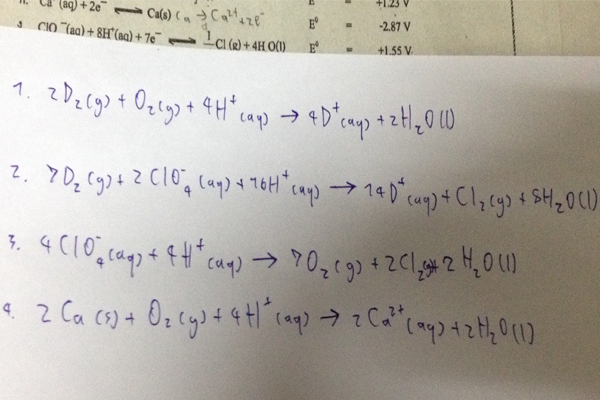 Ca²⁺(aq) + 2e⁻ ⇌ Ca(s) Ca → Ca²⁺ + 2e⁻ E⁰ = +1.23 V
ClO⁻(aq) + 8H⁺(aq) + 7e⁻ ⇌ ½Cl (g) + 4H O(l) E⁰ = -2.87 V
E⁰ = +1.55 V
1. 2D₂(g) + O₂(g) + 4H⁺(aq) → 4D⁺(aq) + 2H₂O(l)
2. 7D₂(g) + 2ClO₄⁻(aq) + 16H⁺(aq) → 14D⁺(aq) + Cl₂(g) + 8H₂O(l)
3. 4ClO₄⁻(aq) + 4H⁺(aq) → 7O₂(g) + 2Cl₂(g) + 2H₂O(l)
4. 2Ca(s) + O₂(g) + 4H⁺(aq) → 2Ca²⁺(aq) + 2H₂O(l)